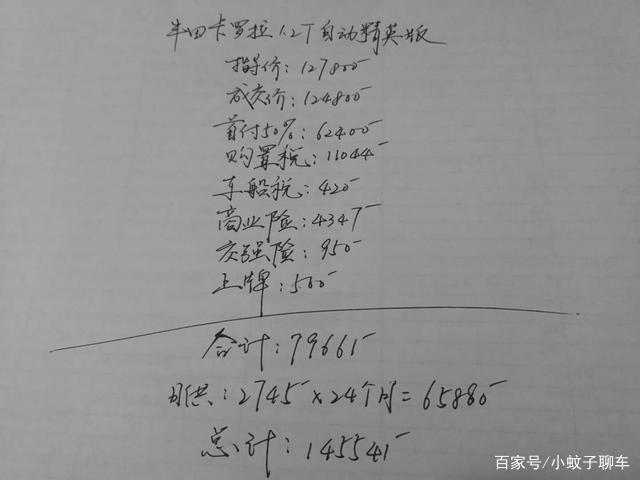 丰田卡罗拉1.2T自动精英版
指导价:127800
成交价:124800
首付50%:62400
购置税:11044
车船税:420
商业险:4347
交强险:950
上牌:500
合计:79661
月供:2745×24个月=65880
总计:145541
百家号/小蚊子聊车